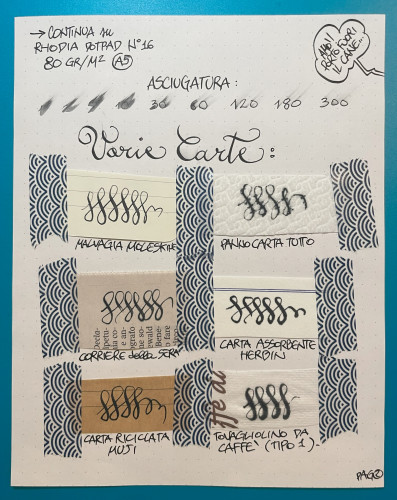 → CONTINUA su
RHODIA DOTPAD N°16
80 GR/M² (A5)
PORTO FUORI
IL CANE...
ASCIUGATURA:
30 60 120 180 300
Varie Carte:
MALVAGIA MOLESKINE
PANNOCARTA TUTTO
CORRIERE della SERA
CARTA ASSORBENTE
HERBIN
CARTA RICICLATA
MUJI
TOVAGLIOLINO DA
CAFFE' (TIPO 1)
PAG 2